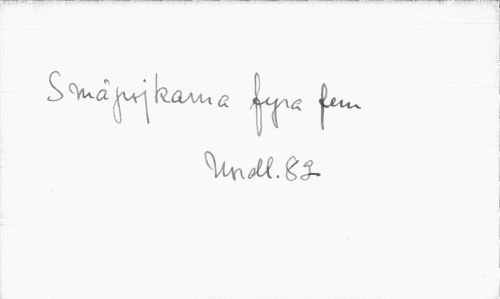 Småpojkarna fyra fem
Nordl. 82